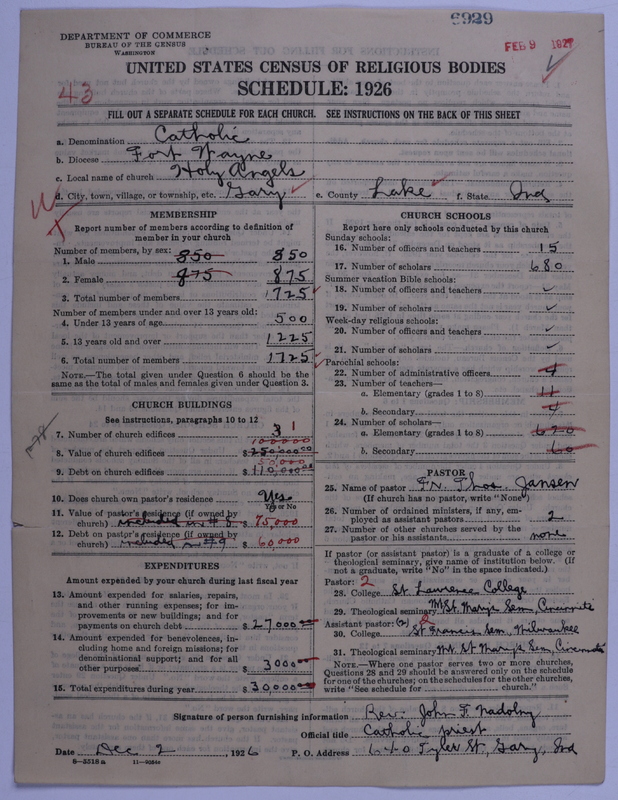 6929
DEPARTMENT OF COMMERCE
BUREAU OF THE CENSUS
WASHINGTON
FEB 9 1927
UNITED STATES CENSUS OF RELIGIOUS BODIES
SCHEDULE: 1926
43
FILL OUT A SEPARATE SCHEDULE FOR EACH CHURCH. SEE INSTRUCTIONS ON THE BACK OF THIS SHEET
a. Denomination Catholic
b. Diocese Fort Wayne
c. Local name of church Holy Angels
d. City, town, village, or township, etc. Gary e. County Lake f. State Ind
MEMBERSHIP
Report number of members according to definition of
member in your church
Number of members, by sex:
1. Male 850 850
2. Female 875 875
3. Total number of members 1725
Number of members under and over 13 years old:
4. Under 13 years of age 500
5. 13 years old and over 1225
6. Total number of members 1725
NOTE.—The total given under Question 6 should be
same as the total of males and females given under Question 3.
CHURCH BUILDINGS
See instructions, paragraphs 10 to 12
7. Number of church edifices 3 1
100000
8. Value of church edifices $250,000.00
50,000
9. Debt on church edifices $110,000.00
10. Does church own pastor's residence Yes
Yes or No
11. Value of pastor's residence (if owned by
church) included in #8 $75,000
12. Debt on pastor's residence (if owned by
church) included in #9 $60,000
EXPENDITURES
Amount expended by your church during last fiscal year
13. Amount expended for salaries, repairs,
and other running expenses; for im-
provements or new buildings; and for
payments on church debt $27,000.00
14. Amount expended for benevolences, in-
cluding home and foreign missions; for
denominational support; and for all
other purposes $3000.00
15. Total expenditures during year $30,000.00
CHURCH SCHOOLS
Report here only schools conducted by this church
Sunday schools:
16. Number of officers and teachers 15
17. Number of scholars 680
Summer vacation Bible schools:
18. Number of officers and teachers ✓
19. Number of scholars ✓
Week-day religious schools:
20. Number of officers and teachers ✓
21. Number of scholars ✓
Parochial schools:
22. Number of administrative officers 4
23. Number of teachers—
a. Elementary (grades 1 to 8) 11
b. Secondary 4
24. Number of scholars—
a. Elementary (grades 1 to 8) 620
b. Secondary 60
PASTOR
25. Name of pastor Fr. Thos. Jansen
(If church has no pastor, write "None")
26. Number of ordained ministers, if any, em-
ployed as assistant pastors 2
27. Number of other churches served by the
pastor or his assistants none
If pastor (or assistant pastor) is a graduate of a college or
theological seminary, give name of institution below. (If
not a graduate, write "No" in the space indicated.)
Pastor: 2
28. College St Lawrence College
29. Theological seminary Mt. St. Marys Sem, Cincinnati
Assistant pastor: (2) 2
30. College St Francis Sem, Milwaukee
31. Theological seminary Mt. St Marys Sem, Cincinnati
NOTE.—Where one pastor serves two or more churches,
Questions 28 and 29 should be answered only on the schedule
for one of the churches; on the schedules for the other churches,
write "See schedule for church."
Signature of person furnishing information Rev. John F. Nadolny
Official title Catholic priest
Date Dec 2 , 1926 P. O. Address 640 Tyler St, Gary, Ind
8—5518 a